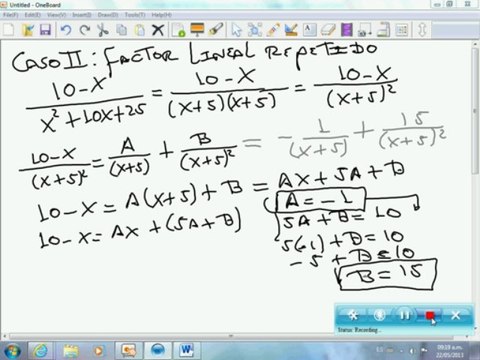 Untitled - OneBoard
File Edit View Insert Draw Window Help
CASO II: FACTOR LINEAL REPETIDO
10-X / x²+10x+25 = 10-X / (x+5)(x+5) = 10-X / (x+5)²
10-X / (x+5)² = A / (x+5) + B / (x+5)² = - 1 / (x+5) + 15 / (x+5)²
10-X = A(x+5)+B = AX+5A+B
10-X = AX+(5A+B)
A=-1
5A+B=10
5(-1)+B=10
-5+B=10
B=15
Status: Recording...
ES
09:19 a.m.